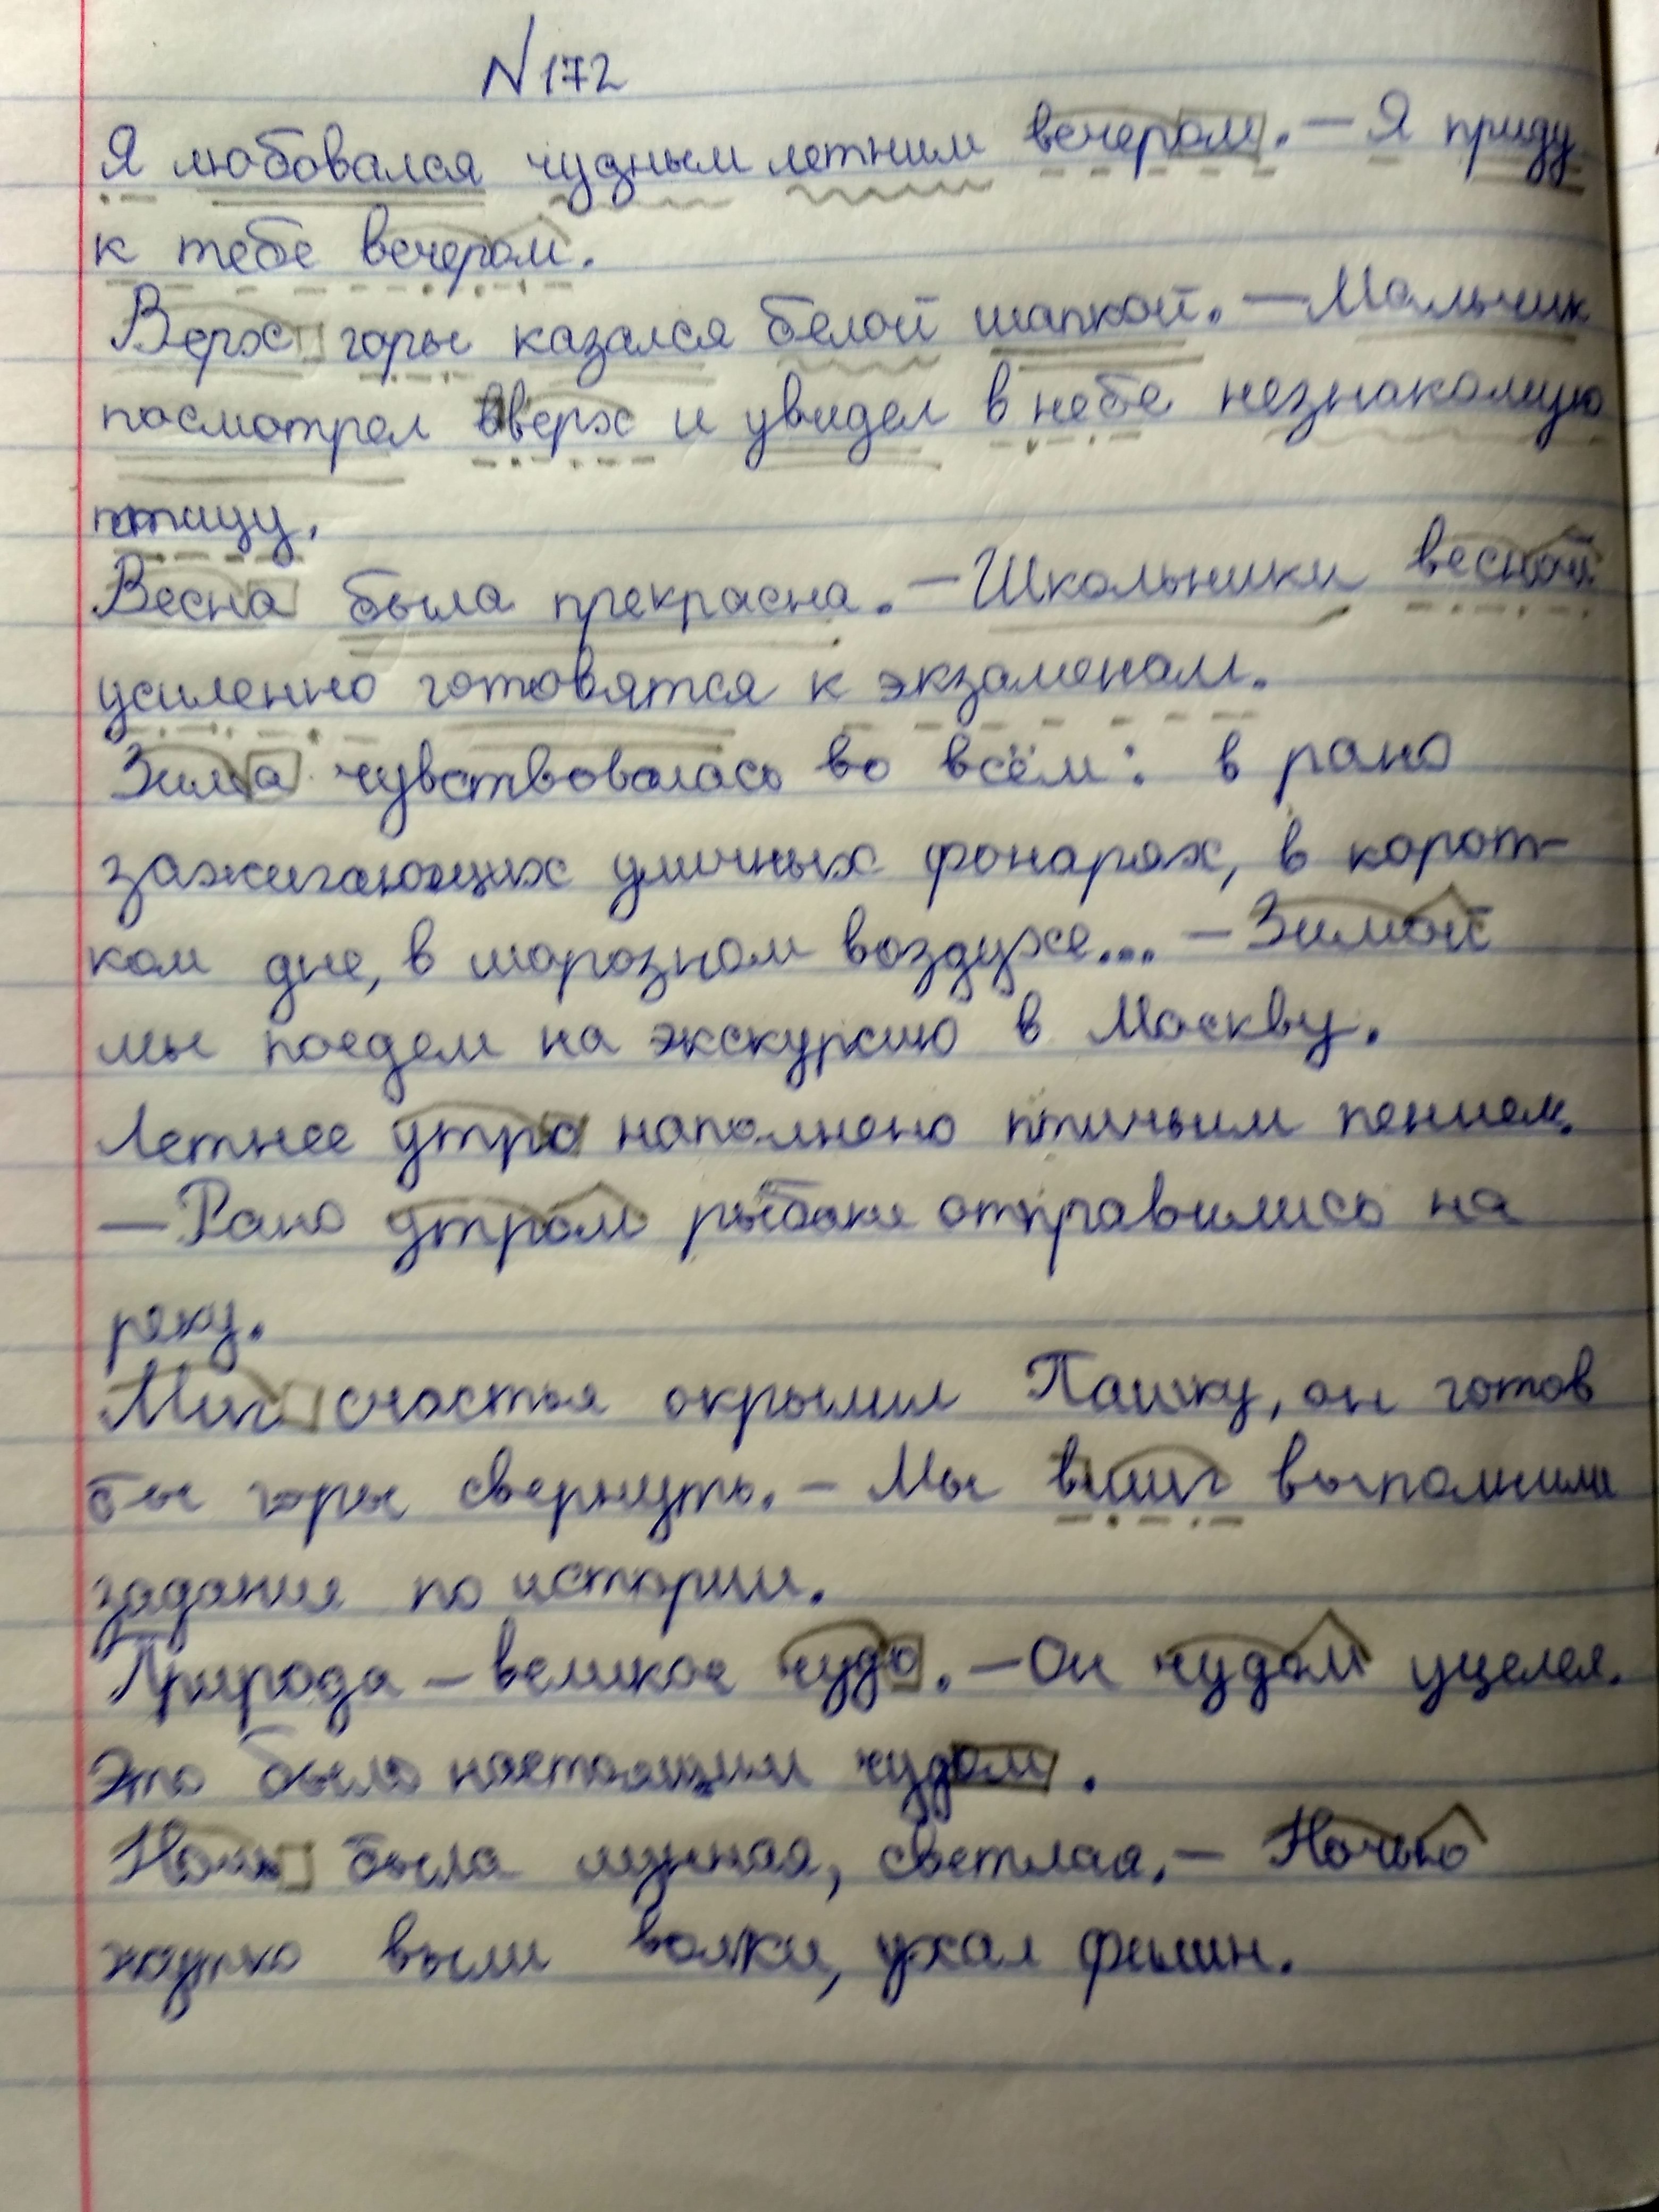 N 172
Я любовался чудным летним вечером. – Я приду
к тебе вечером.
Верх горы казался белой шапкой. – Мальчик
посмотрел вверх и увидел в небе незнакомую
птицу.
Весна была прекрасна. – Школьники весной
усиленно готовятся к экзаменам.
Зима чувствовалась во всём: в рано
зажигающих уличных фонарях, в корот-
ком дне, в морозном воздухе... – Зимой
мы поедем на экскурсию в Москву.
Летнее утро наполнено птичьим пением.
– Рано утром рыбаки отправились на
реку.
Миг счастья окрылил Пашку, он готов
бы горы свернуть. – Мы вмиг выполнили
задание по истории.
Природа – великое чудо. – Он чудом уцелел.
Это было настоящим чудом.
Ночь была лунная, светлая. – Ночью
жутко выли волки, ухал филин.